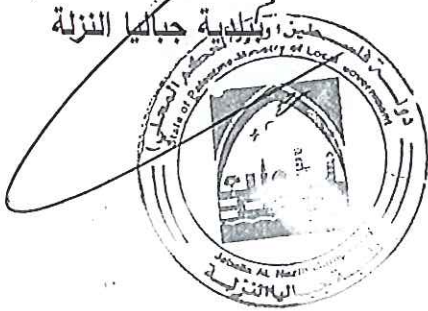 بلدية جباليا النزلة
دولة فلسطين
الحكم المحلي
State of Palestine Ministry of Local Government
Jabalia AL Nazla
جباليا النزلة